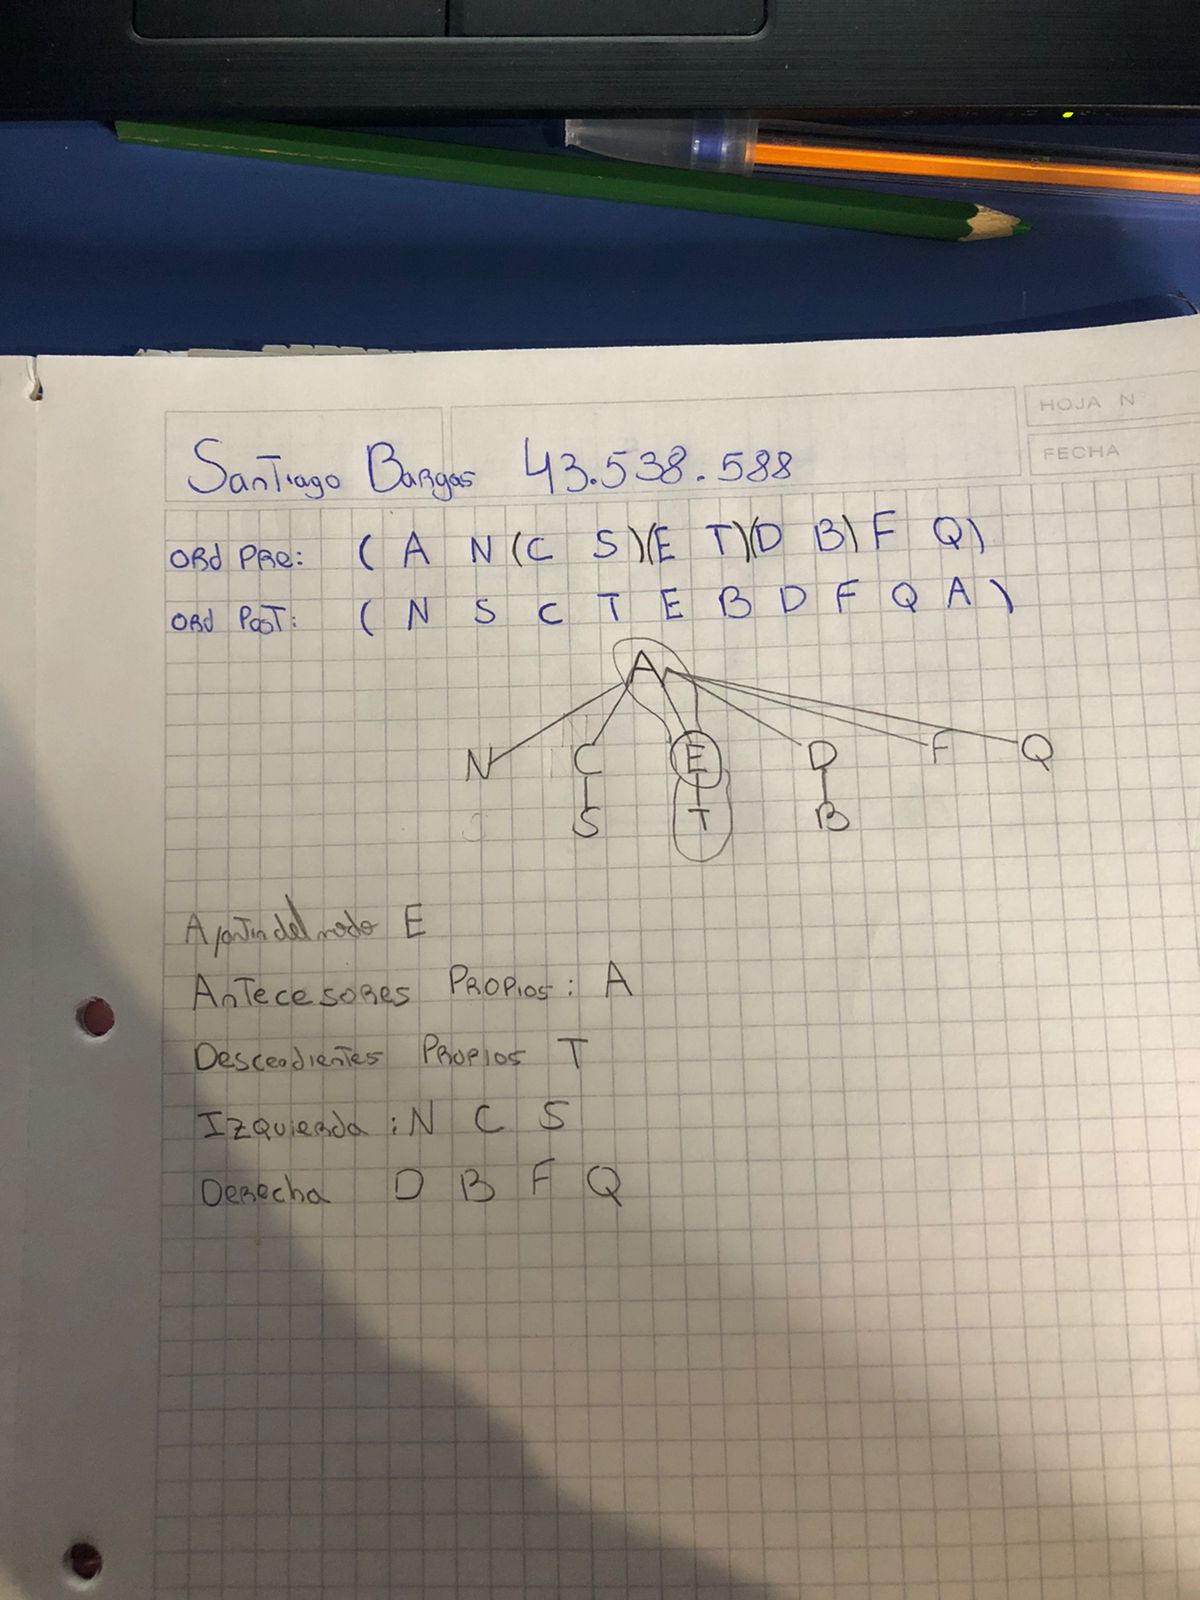 HOJA N
FECHA
Santiago Bargas 43.538.588
ORd PRe: ( A N (C S)(E T)(D B) F Q)
ORd PosT: ( N S C T E B D F Q A )
A
N C E D F Q
S T B
A partir del nodo E
AnTecesores Propios: A
Descendientes Propios T
Izquierda: N C S
Derecha D B F Q